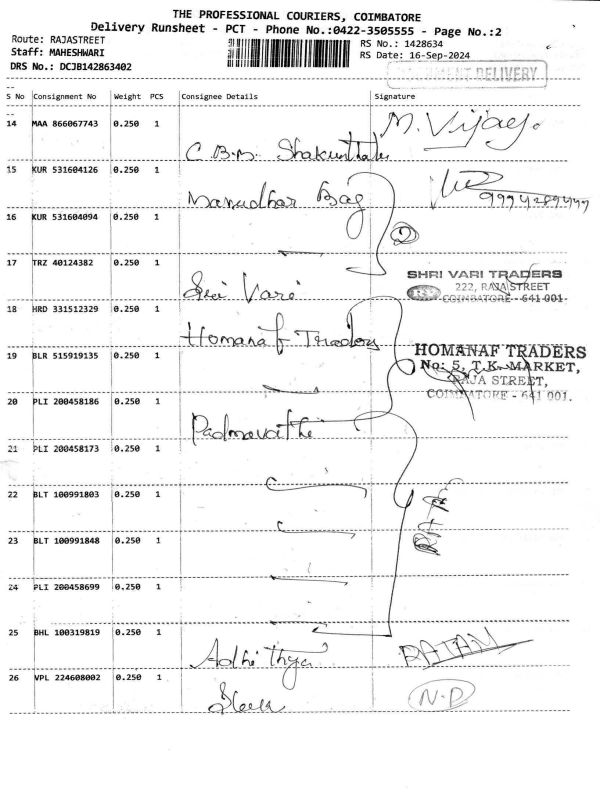 THE PROFESSIONAL COURIERS, COIMBATORE
Delivery Runsheet - PCT - Phone No.:0422-3505555 - Page No.:2
Route: RAJASTREET
RS No.: 1428634
Staff: MAHESHWARI
RS Date: 16-Sep-2024
DRS No.: DCJB142863402
DELIVERY
S No Consignment No Weight PCS Consignee Details Signature
14 MAA 866067743 0.250 1
C.B.M. Shakunthala M. Vijay.
15 KUR 531604126 0.250 1
Marudhar Bag
16 KUR 531604094 0.250 1
2
17 TRZ 40124382 0.250 1
Sri Vari
SHRI VARI TRADERS
222, RAJA STREET
COIMBATORE - 641 001.
18 HRD 331512329 0.250 1
Homanaf Traders
19 BLR 515919135 0.250 1
HOMANAF TRADERS
No: 5, T.K. MARKET,
RAJA STREET,
COIMBATORE - 641 001.
20 PLI 200458186 0.250 1
Padmavathi
21 PLI 200458173 0.250 1
22 BLT 100991803 0.250 1
23 BLT 100991848 0.250 1
24 PLI 200458699 0.250 1
25 BHL 100319819 0.250 1
Adhithya RATAM
26 VPL 224608002 0.250 1
N.D